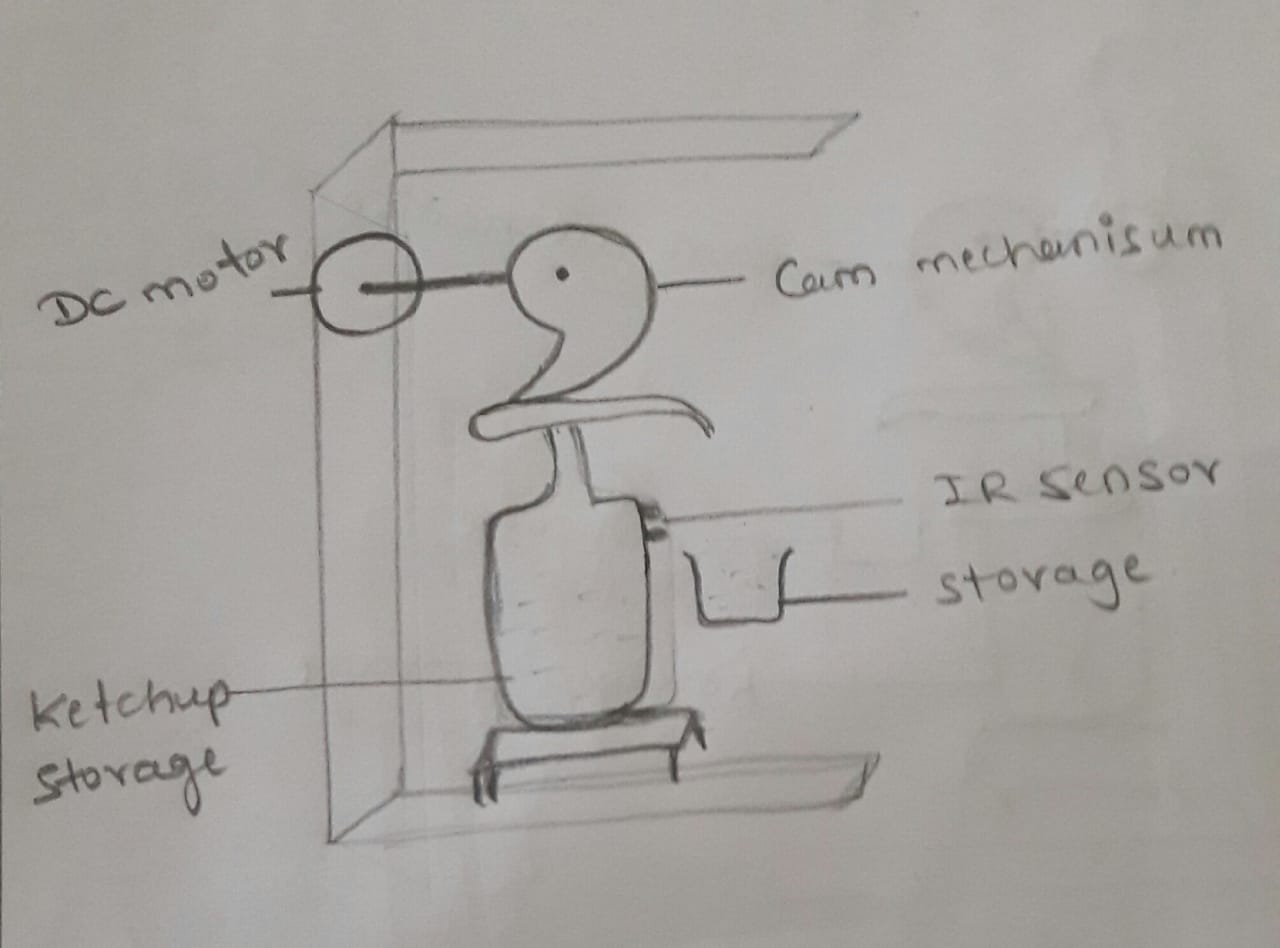 DC motor
Cam mechanisum
IR sensor
storage
Ketchup
storage